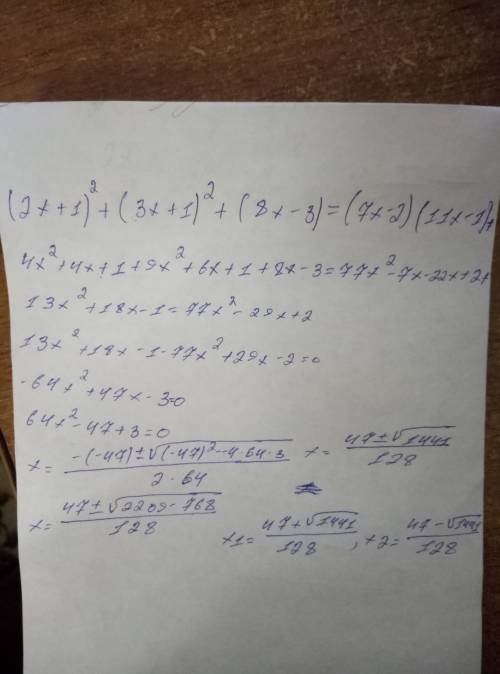 (2x+1)²+(3x+1)²+(8x-3)=(7x-2)(11x-1)
4x²+4x+1+9x²+6x+1+8x-3=77x²-7x-22x+2
13x²+18x-1=77x²-29x+2
13x²+18x-1-77x²+29x-2=0
-64x²+47x-3=0
64x²-47+3=0
x=(-(-47)±√((-47)²-4·64·3))/(2·64) x=(47±√1441)/128
x=(47±√(2209-768))/128
x1=(47+√1441)/128, x2=(47-√1441)/128